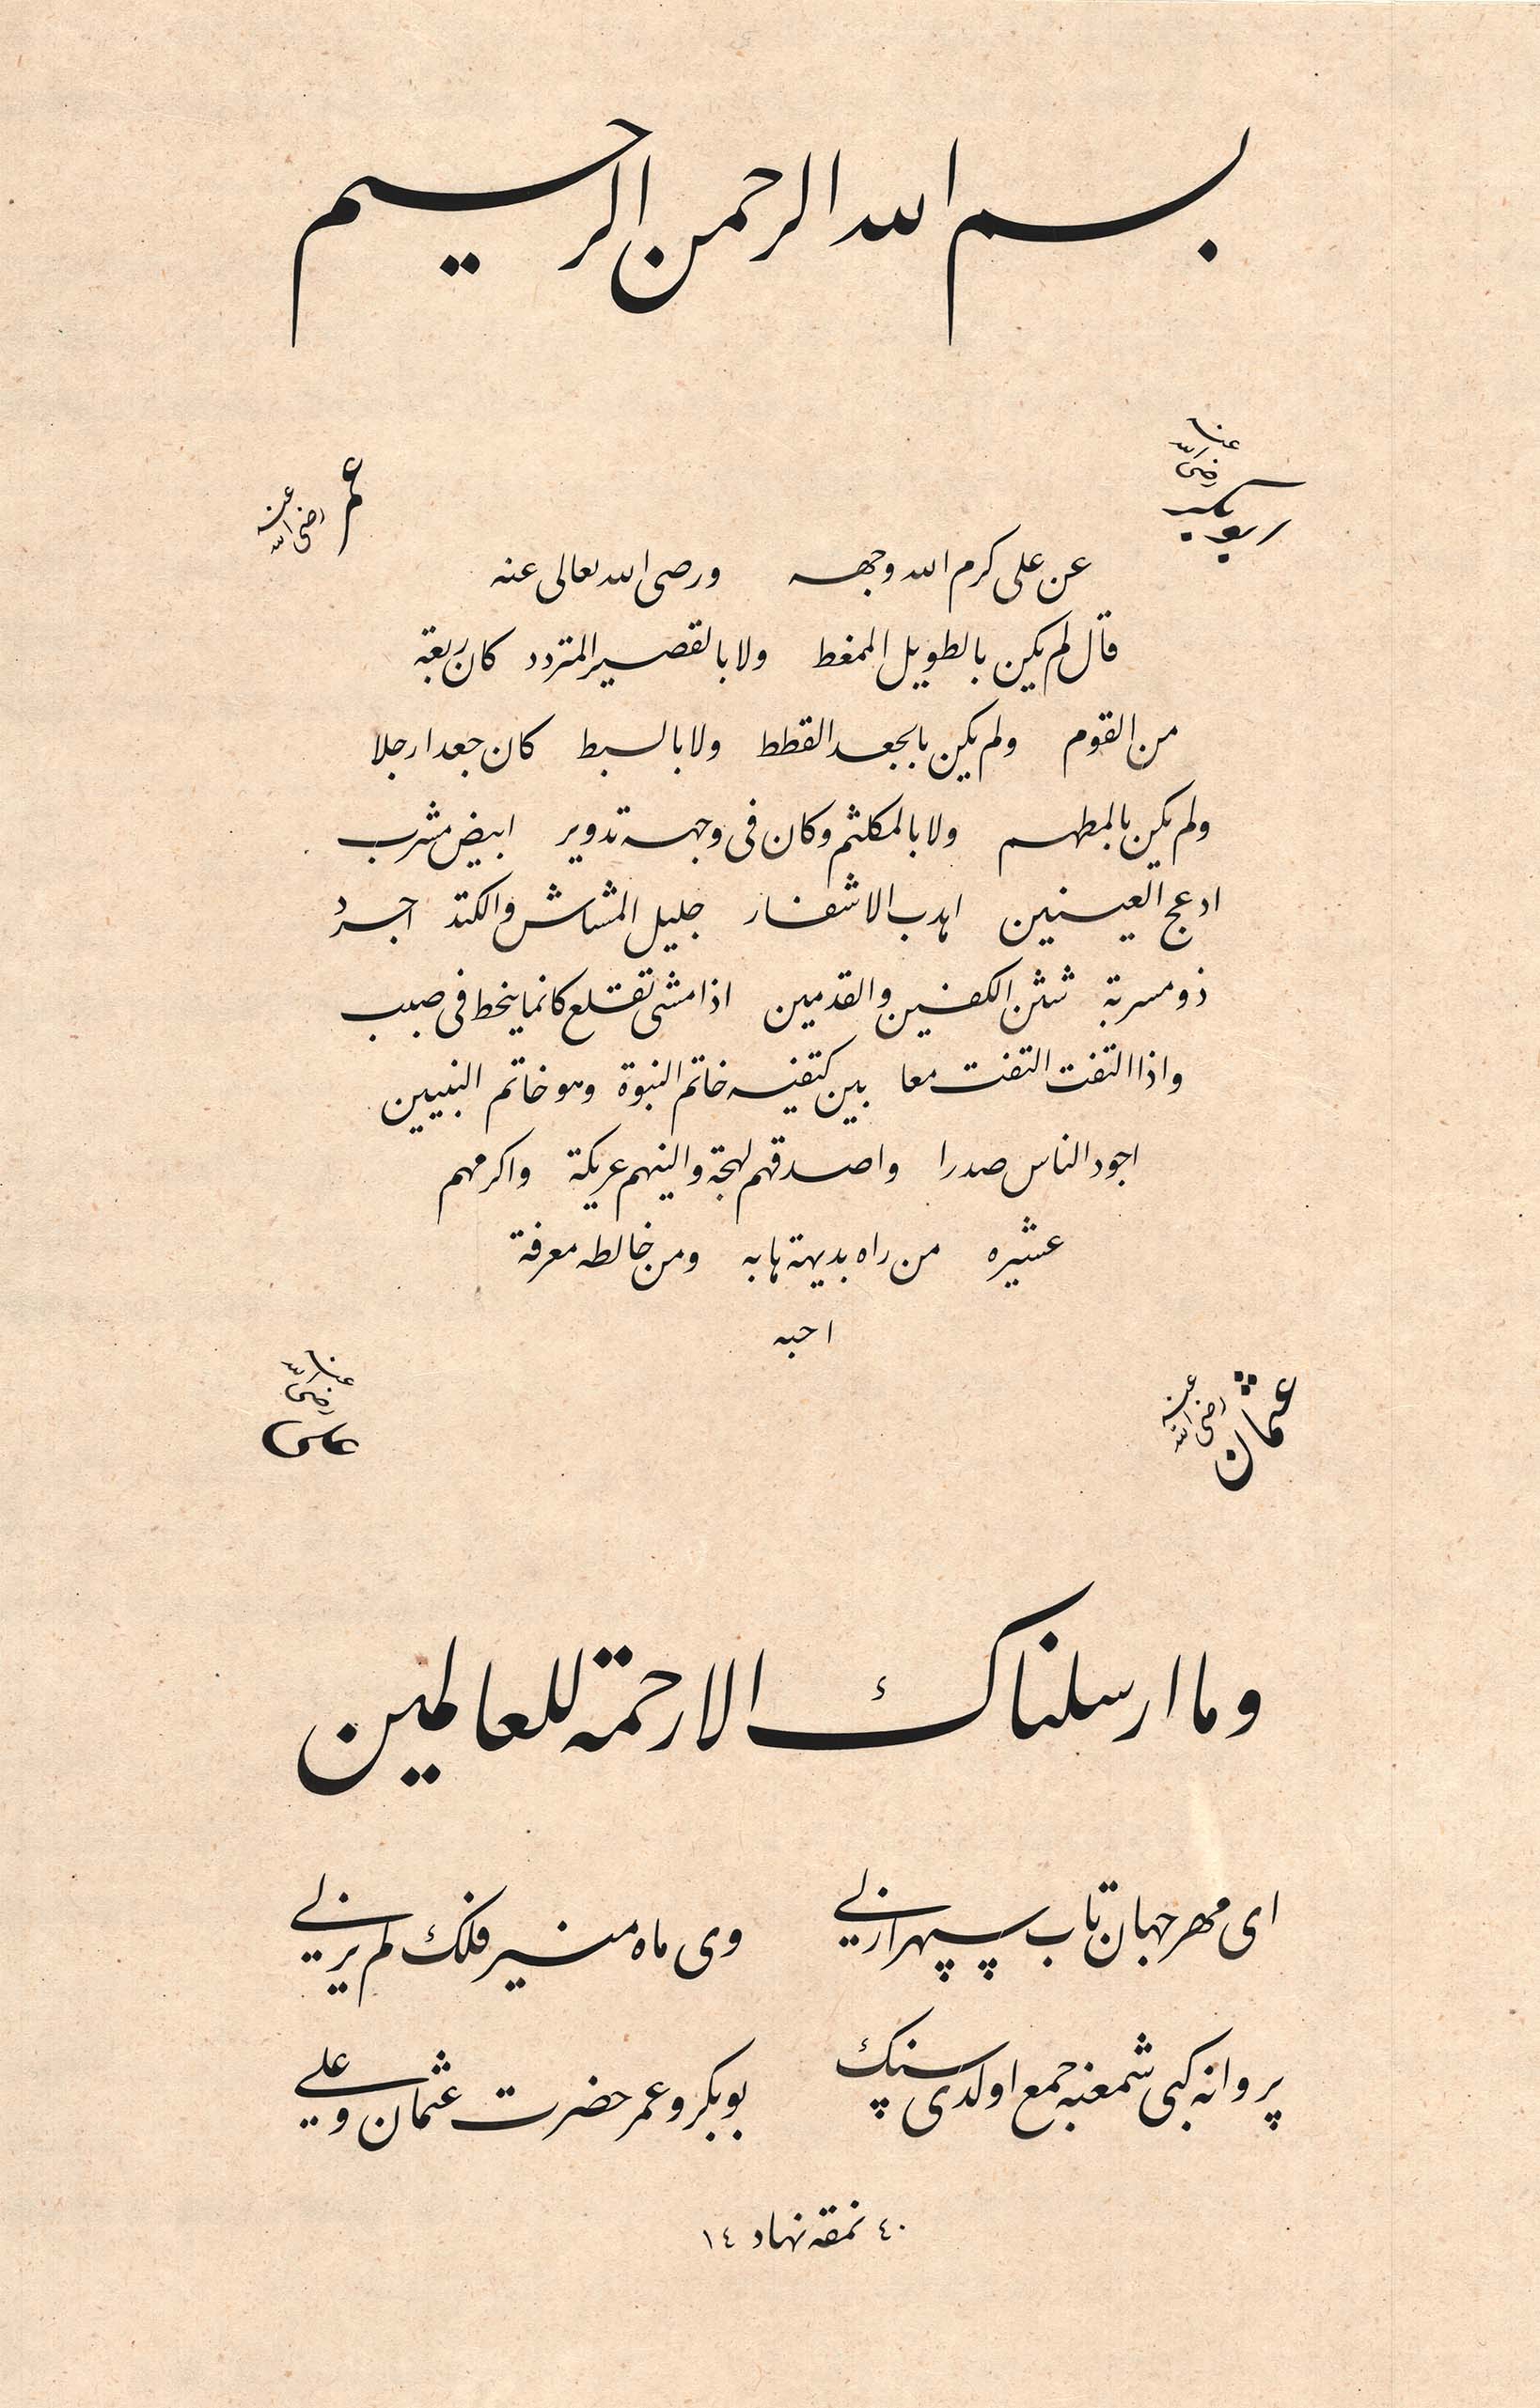 بسم الله الرحمن الرحيم
ابو بكر رضى الله عنه
عمر رضى الله عنه
عن على كرم الله وجهه ورصى الله تعالى عنه
قال لم يكن بالطويل الممغط ولا بالقصير المتردد كان ربعة
من القوم ولم يكن بالجعد القطط ولا بالسبط كان جعدا رجلا
ولم يكن بالمطهم ولا بالمكلثم وكان فى وجهه تدوير ابيض مشرب
ادعج العينين اهدب الاشفار جليل المشاش والكتد اجرد
ذو مسربة شثن الكفين والقدمين اذا مشى تقلع كانما ينحط فى صبب
واذا التفت التفت معا بين كتفيه خاتم النبوة وهو خاتم النبيين
اجود الناس صدرا واصدقهم لهجة والينهم عريكة واكرمهم
عشيره من راه بديهة هابه ومن خالطه معرفة
احبه
عثمان رضى الله عنه
على رضى الله عنه
وما ارسلناك الا رحمة للعالمين
اى مهر جهان تاب سپهر ازلي وى ماه منير فلك لم يزلي
پروانه كبى شمعنه جمع اولدى سنك بوبكر و عمر حضرت عثمان و علي
٤٠ نمقه نهاد ١٤